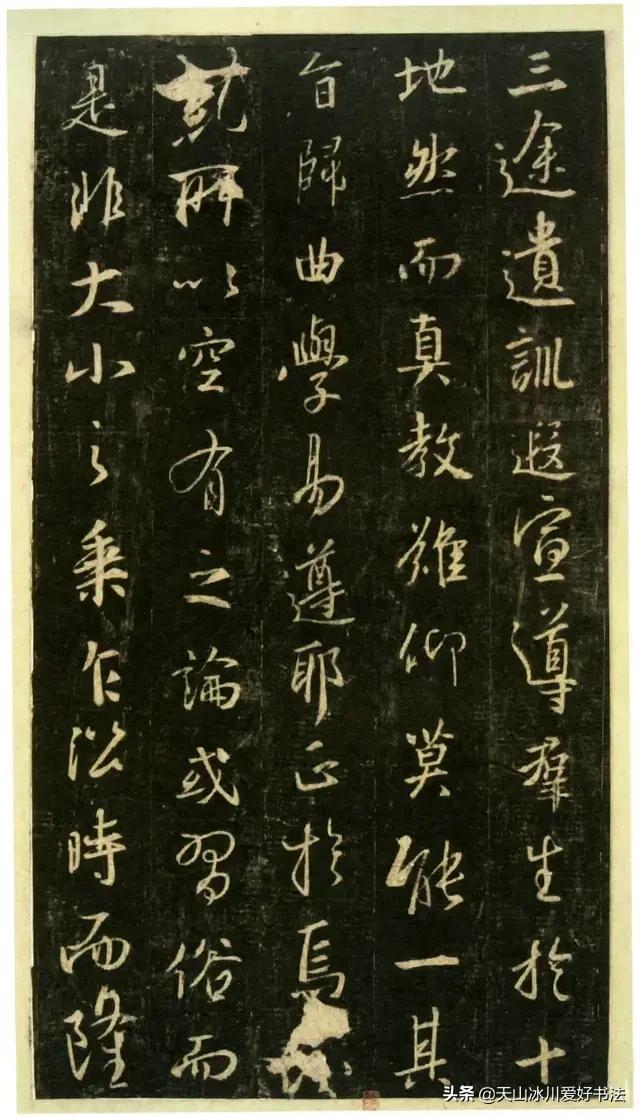 三途遺訓遐宣導羣生於十
地然而真教難仰莫能一其
旨歸曲學易遵耶正於焉
糺所以空有之論或習俗而
是非大小之乘乍沿時而隆
头条 @天山冰川爱好书法